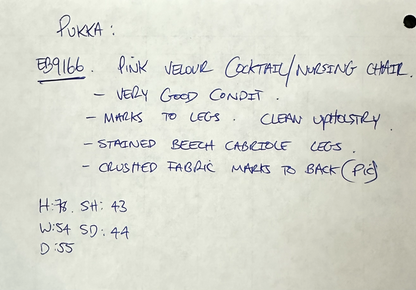 PUKKA:
EB9166. PINK VELOUR COCKTAIL/NURSING CHAIR.
- VERY GOOD CONDIT.
- MARKS TO LEGS. CLEAN UPHOLSTRY
- STAINED BEECH CABRIOLE LEGS.
- CRUSHED FABRIC MARKS TO BACK (PIC)
H:78. SH: 43
W:54 SD: 44
D:55